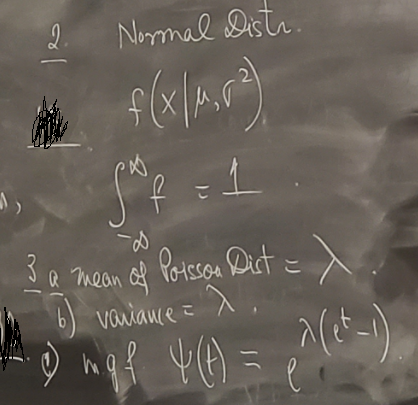 2. Normal Distr.
f(x|μ,σ²)
∫_{-∞}^{∞} f = 1.
3 a mean of Poisson Dist = λ.
b) variance = λ.
c) mgf ψ(t) = e^{λ(e^t - 1)}.